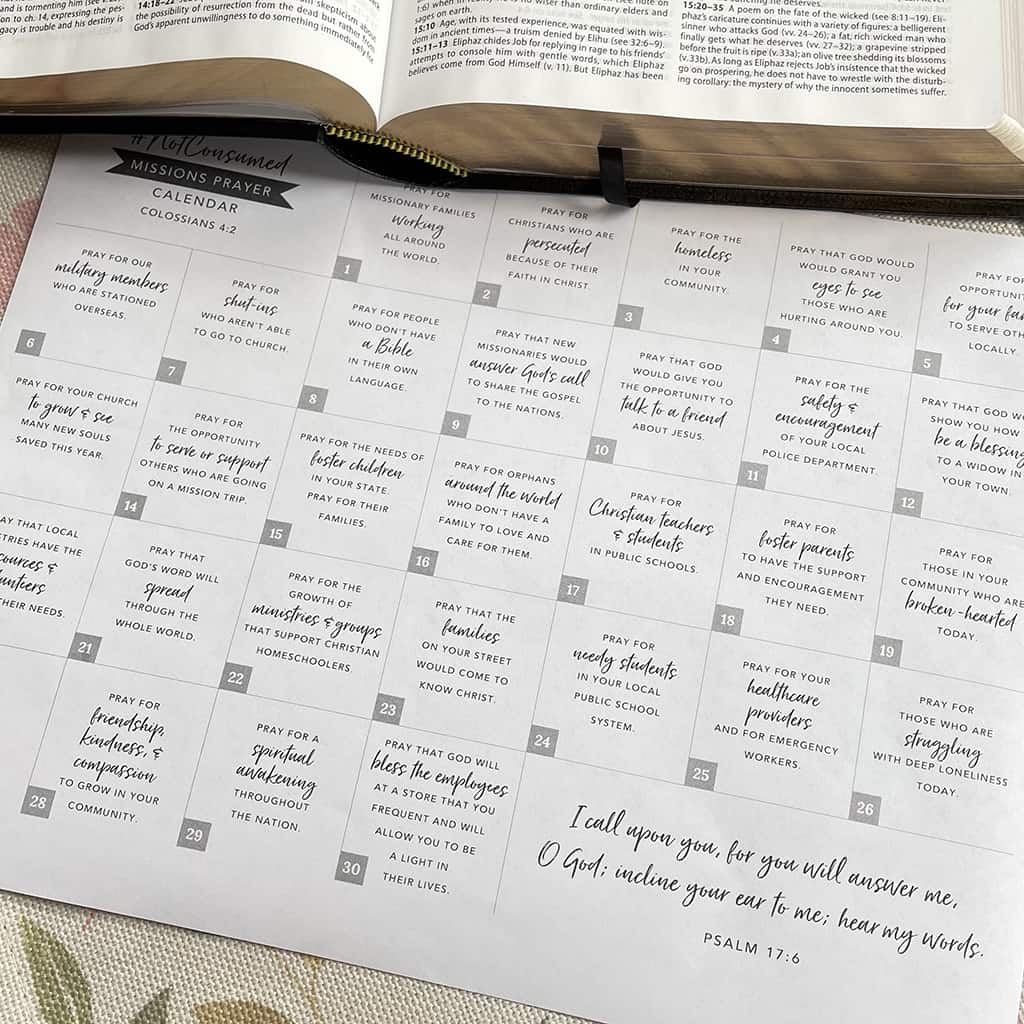 and is tormenting him (see
on to ch. 14, expressing the pes-
gacy is trouble and his destiny is
14:18–22
skepticism about
the possibility of resurrection from the dead but rather from
God's apparent unwillingness to do something immediately for
1:6) when
no wiser than ordinary elders and
sages on earth.
15:10 Age, with its tested experience, was equated with wis-
dom in ancient times—a truism denied by Elihu (see 32:6–9).
15:11–13 Eliphaz chides Job for replying in rage to his friends'
attempts to console him with gentle words, which Eliphaz
believes come from God Himself (v. 11). But Eliphaz has been
something he deserves.
15:20–35 A poem on the fate of the wicked (see 8:11–19). Eli-
phaz's caricature continues with a variety of figures: a belligerent
sinner who attacks God (vv. 24–26); a fat, rich wicked man who
finally gets what he deserves (vv. 27–32); a grapevine stripped
before the fruit is ripe (v.33a); an olive tree shedding its blossoms
(v.33b). As long as Eliphaz rejects Job's insistence that the wicked
go on prospering, he does not have to wrestle with the disturb-
ing corollary: the mystery of why the innocent sometimes suffer.
#NotConsumed
MISSIONS PRAYER
CALENDAR
COLOSSIANS 4:2
PRAY FOR
MISSIONARY FAMILIES
working
ALL AROUND
THE WORLD.
1
PRAY FOR
CHRISTIANS WHO ARE
persecuted
BECAUSE OF THEIR
FAITH IN CHRIST.
2
PRAY FOR THE
homeless
IN YOUR
COMMUNITY.
3
PRAY THAT GOD WOULD
WOULD GRANT YOU
eyes to see
THOSE WHO ARE
HURTING AROUND YOU.
4
PRAY FOR
OPPORTUNIT
for your fam
TO SERVE OTH
LOCALLY.
5
PRAY FOR OUR
military members
WHO ARE STATIONED
OVERSEAS.
6
PRAY FOR
shut-ins
WHO AREN'T ABLE
TO GO TO CHURCH.
7
PRAY FOR PEOPLE
WHO DON'T HAVE
a Bible
IN THEIR OWN
LANGUAGE.
8
PRAY THAT NEW
MISSIONARIES WOULD
answer God's call
TO SHARE THE GOSPEL
TO THE NATIONS.
9
PRAY THAT GOD
WOULD GIVE YOU
THE OPPORTUNITY TO
talk to a friend
ABOUT JESUS.
10
PRAY FOR THE
safety &
encouragement
OF YOUR LOCAL
POLICE DEPARTMENT.
11
PRAY THAT GOD WO
SHOW YOU HOW
be a blessing
TO A WIDOW IN
YOUR TOWN.
12
PRAY FOR YOUR CHURCH
to grow & see
MANY NEW SOULS
SAVED THIS YEAR.
PRAY FOR
THE OPPORTUNITY
to serve or support
OTHERS WHO ARE GOING
ON A MISSION TRIP.
14
PRAY FOR THE NEEDS OF
foster children
IN YOUR STATE.
PRAY FOR THEIR
FAMILIES.
15
PRAY FOR ORPHANS
around the world
WHO DON'T HAVE A
FAMILY TO LOVE AND
CARE FOR THEM.
16
PRAY FOR
Christian teachers
& students
IN PUBLIC SCHOOLS.
17
PRAY FOR
foster parents
TO HAVE THE SUPPORT
AND ENCOURAGEMENT
THEY NEED.
18
PRAY FOR
THOSE IN YOUR
COMMUNITY WHO ARE
broken-hearted
TODAY.
19
AY THAT LOCAL
STRIES HAVE THE
ources &
unteers
THEIR NEEDS.
PRAY THAT
GOD'S WORD WILL
spread
THROUGH THE
WHOLE WORLD.
21
PRAY FOR THE
GROWTH OF
ministries & groups
THAT SUPPORT CHRISTIAN
HOMESCHOOLERS.
22
PRAY THAT THE
families
ON YOUR STREET
WOULD COME TO
KNOW CHRIST.
23
PRAY FOR
needy students
IN YOUR LOCAL
PUBLIC SCHOOL
SYSTEM.
24
PRAY FOR YOUR
healthcare
providers
AND FOR EMERGENCY
WORKERS.
25
PRAY FOR
THOSE WHO ARE
struggling
WITH DEEP LONELINESS
TODAY.
26
PRAY FOR
friendship,
kindness, &
compassion
TO GROW IN YOUR
COMMUNITY.
28
PRAY FOR A
spiritual
awakening
THROUGHOUT
THE NATION.
29
PRAY THAT GOD WILL
bless the employees
AT A STORE THAT YOU
FREQUENT AND WILL
ALLOW YOU TO BE
A LIGHT IN
THEIR LIVES.
30
I call upon you, for you will answer me,
O God; incline your ear to me; hear my words.
PSALM 17:6